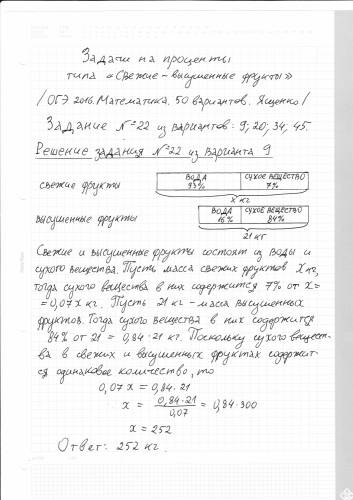 Задачи на проценты
типа «Свежие-высушенные фрукты»
/ОГЭ 2016. Математика. 50 вариантов. Ященко/
Задание №22 из вариантов: 9; 20; 34; 45.
Решение задания №22 из варианта 9
ВОДА СУХОЕ ВЕЩЕСТВО
свежие фрукты 93% 7%
x кг
ВОДА СУХОЕ ВЕЩЕСТВО
высушенные фрукты 16% 84%
21 кг
Свежие и высушенные фрукты состоят из воды и
сухого вещества. Пусть масса свежих фруктов x кг,
тогда сухого вещества в них содержится 7% от x=
=0,07x кг. Пусть 21 кг - масса высушенных
фруктов. Тогда сухого вещества в них содержится
84% от 21 = 0,84·21 кг. Поскольку сухого вещест-
ва в свежих и высушенных фруктах содержит-
ся одинаковое количество, то
0,07x = 0,84·21
x = 0,84·21/0,07 = 0,84·300
x = 252
Ответ: 252 кг.